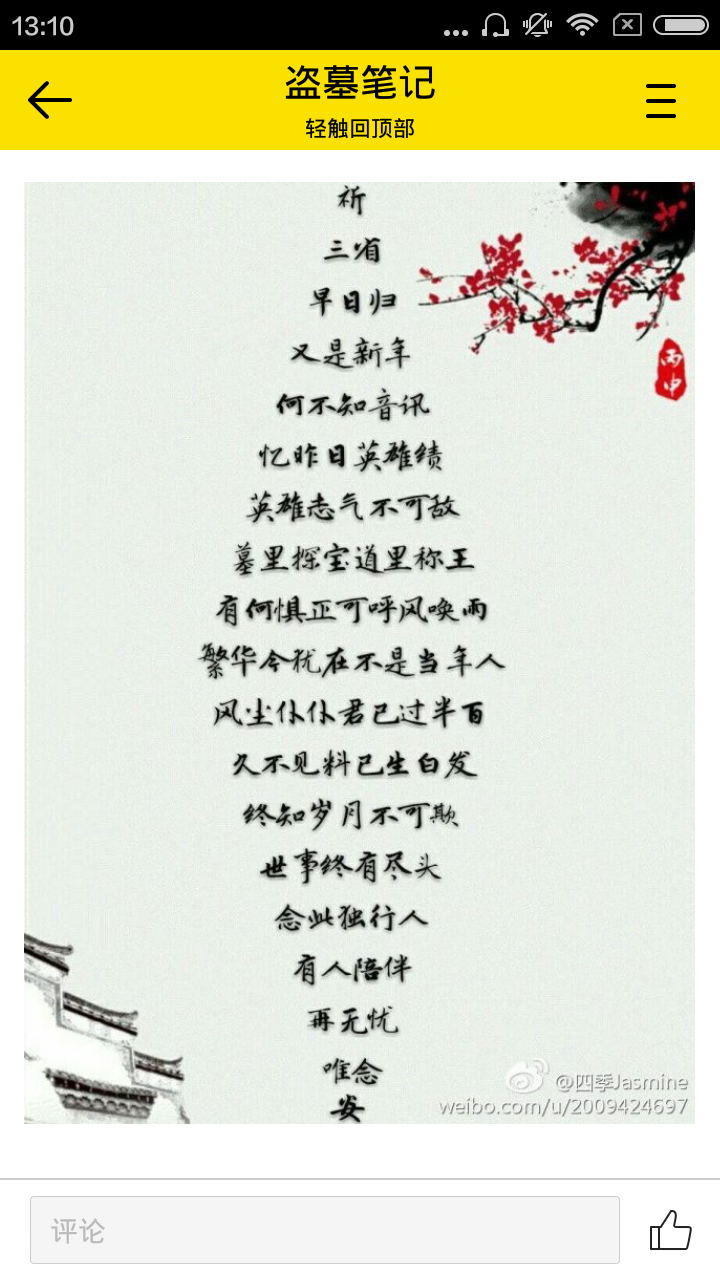 13:10
盗墓笔记
轻触回顶部
祈
三省
早日归
又是新年
何不知音讯
忆昨日英雄绩
英雄志气不可敌
墓里探宝道里称王
有何惧亚可呼风唤雨
繁华今犹在不是当年人
风尘仆仆君已过半百
久不见料已生白发
终知岁月不可欺
世事终有尽头
念此独行人
有人陪伴
再无忧
唯念
安
丙申
@四季Jasmine
weibo.com/u/2009424697
评论